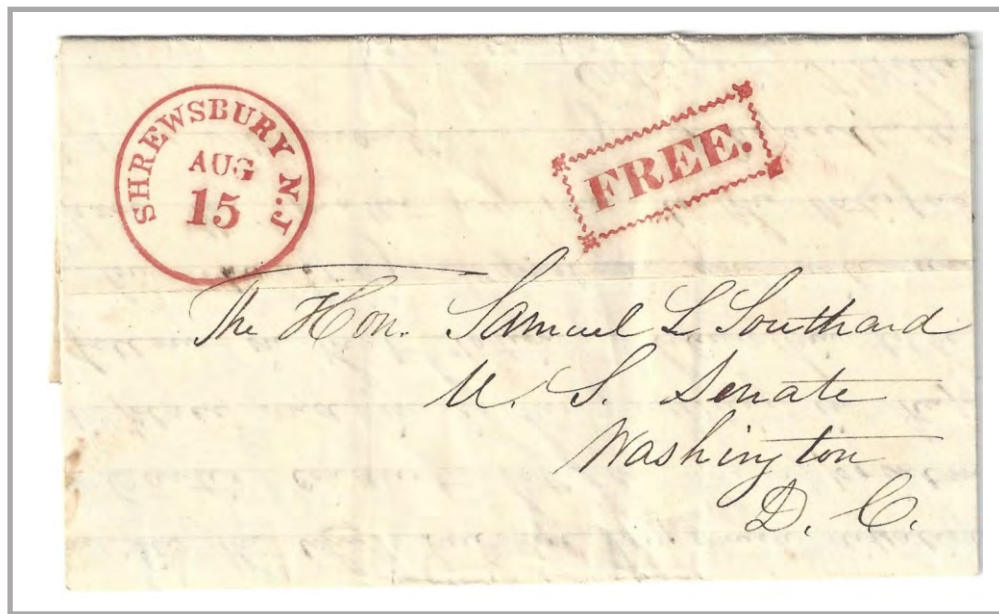 SHREWSBURY N.J
AUG
15
FREE.
The Hon. Samuel L Southard
U. S. Senate
Washington
D. C.